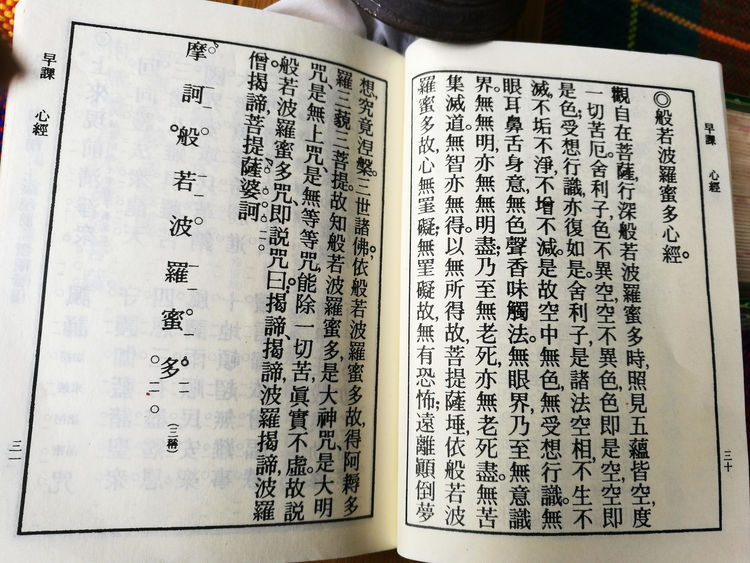 早課 心經 三十
◎般若波羅蜜多心經。
觀自在菩薩,行深般若波羅蜜多時,照見五蘊皆空,度
一切苦厄。舍利子,色不異空,空不異色,色即是空,空即
是色;受想行識,亦復如是。舍利子,是諸法空相,不生不
滅,不垢不淨,不增不減。是故空中無色,無受想行識。無
眼耳鼻舌身意,無色聲香味觸法。無眼界,乃至無意識
界。無無明,亦無無明盡;乃至無老死,亦無老死盡。無苦
集滅道。無智亦無得。以無所得故,菩提薩埵,依般若波
羅蜜多故,心無罣礙;無罣礙故,無有恐怖;遠離顛倒夢
想,究竟涅槃。三世諸佛,依般若波羅蜜多故,得阿耨多
羅三藐三菩提。故知般若波羅蜜多,是大神咒,是大明
咒,是無上咒,是無等等咒,能除一切苦,眞實不虛。故說
般若波羅蜜多咒,即說咒曰:揭諦揭諦,波羅揭諦,波羅
僧揭諦,菩提薩婆訶
摩訶般若波羅蜜多 (三稱)
早課 心經 三一